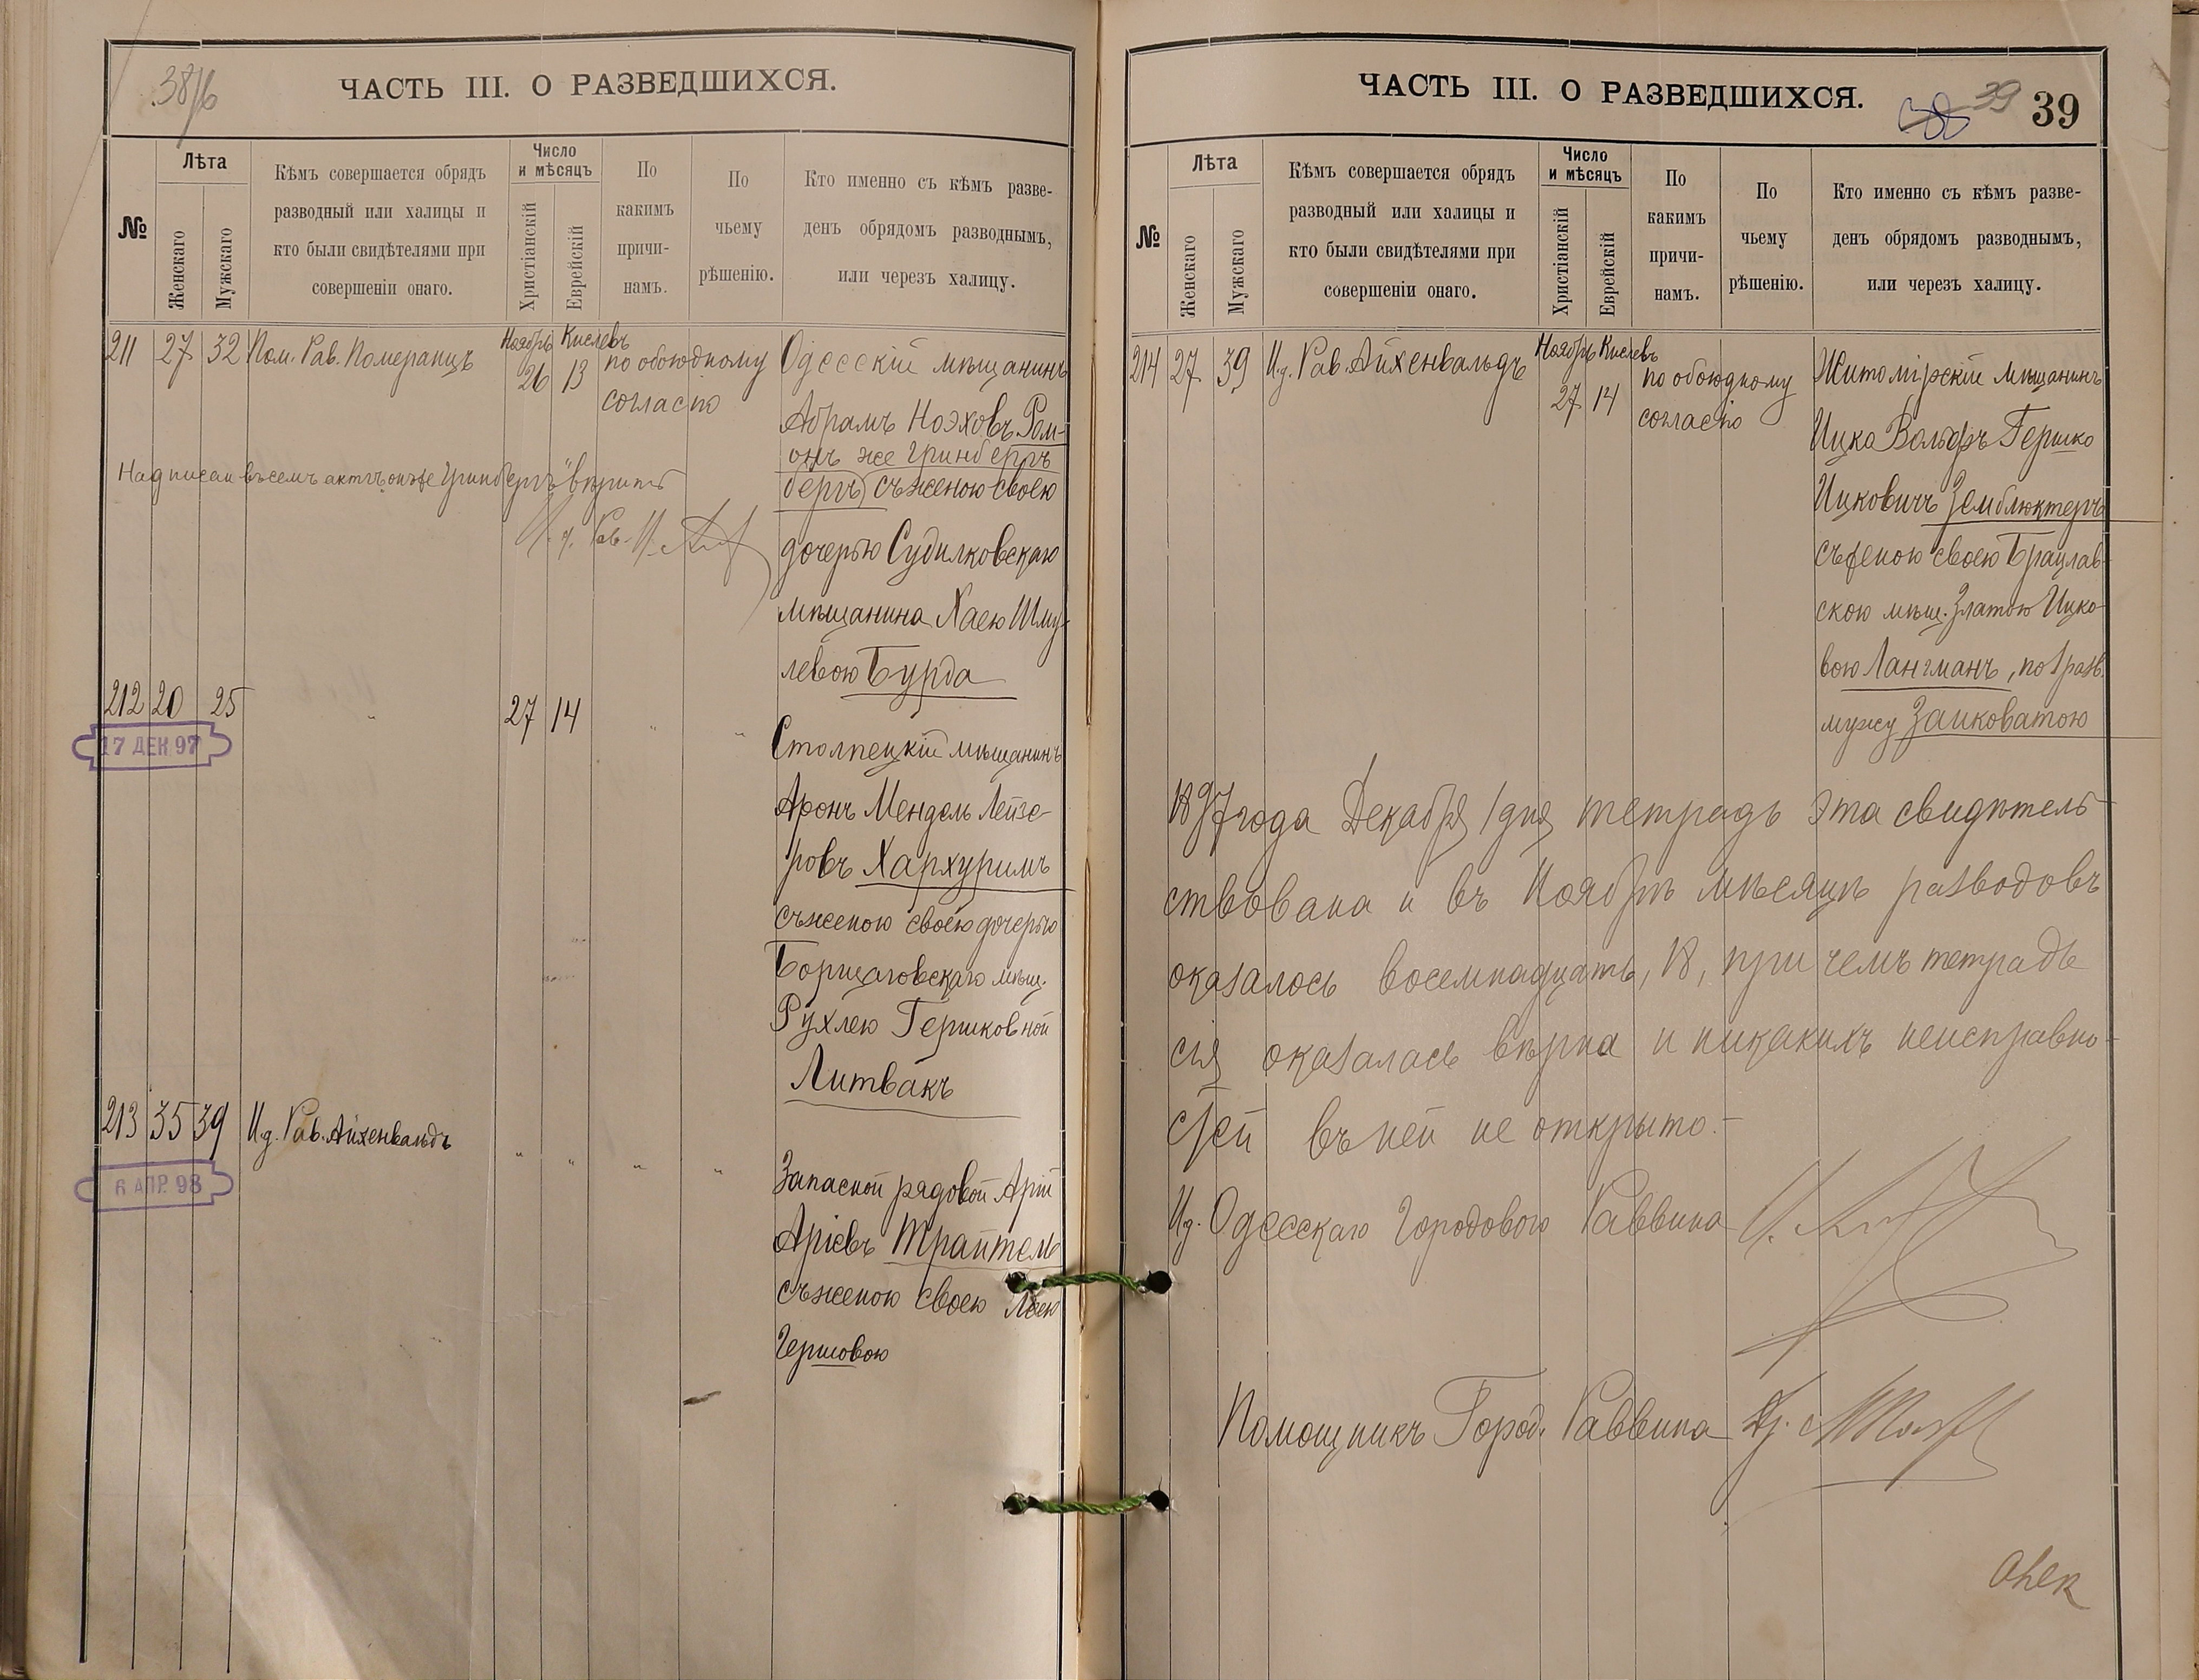 38/б
ЧАСТЬ III. О РАЗВЕДШИХСЯ.
№
Лѣта
Женскаго
Мужскаго
Кѣмъ совершается обрядъ
разводный или халицы и
кто были свидѣтелями при
совершеніи онаго.
Число
и мѣсяцъ
Христіанскій
Еврейскій
По
какимъ
причи-
намъ.
По
чьему
рѣшенію.
Кто именно съ кѣмъ разве-
денъ обрядомъ разводнымъ,
или черезъ халицу.
211 27 32 Пом. Рав. Померанцъ Ноябрь 26 Кислевъ 13 по обоюдному
согласію
Одесскій мѣщанинъ
Абрамъ Ноэховъ Ром-
онъ же Гринбергъ
бергъ съ женою своею
дочерью Судилковскаго
мѣщанина Хаею Шму-
левою Бурда
Надписан въ семъ актѣ онъ же Гринбергъ" вѣрить
И. д. Рав.
212 20 25 " 27 14 " "
17 ДЕК 97
Столпецкій мѣщанинъ
Аронъ Мендель Лейзе-
ровъ Хархуримъ
съ женою своею дочерью
Борщаговскаго мѣщ.
Рухлею Гершковной
Литвакъ
213 35 39 И.д. Рав. Айхенвальдъ " " " "
6 АПР. 98
Запасной рядовой Арій
Аріевъ Трайтель
съ женою своею Леею
Гершовою
ЧАСТЬ III. О РАЗВЕДШИХСЯ.
39 39
№
Лѣта
Женскаго
Мужскаго
Кѣмъ совершается обрядъ
разводный или халицы и
кто были свидѣтелями при
совершеніи онаго.
Число
и мѣсяцъ
Христіанскій
Еврейскій
По
какимъ
причи-
намъ.
По
чьему
рѣшенію.
Кто именно съ кѣмъ разве-
денъ обрядомъ разводнымъ,
или черезъ халицу.
214 27 39 И.д. Рав. Айхенвальдъ Ноябрь 27 Кислевъ 14 по обоюдному
согласію
Житомірскій мѣщанинъ
Ицко Вольфъ Гершко
Ицковичъ Земблюктеръ
съ женою своею Брацлав-
скою мѣщ. Златою Ицко-
вою Лангманъ, по 1 разв.
мужу Заиковатою
1897 года Декабря 1 дня тетрадь эта свидѣтель-
ствована и въ Ноябрѣ мѣсяцѣ разводовъ
оказалось восемнадцать, 18, при чемъ тетрадь
сія оказалась вѣрна и никакихъ неисправно-
стей въ ней не открыто.-
И.д. Одесскаго Городового Раввина
Помощникъ Город. Раввина